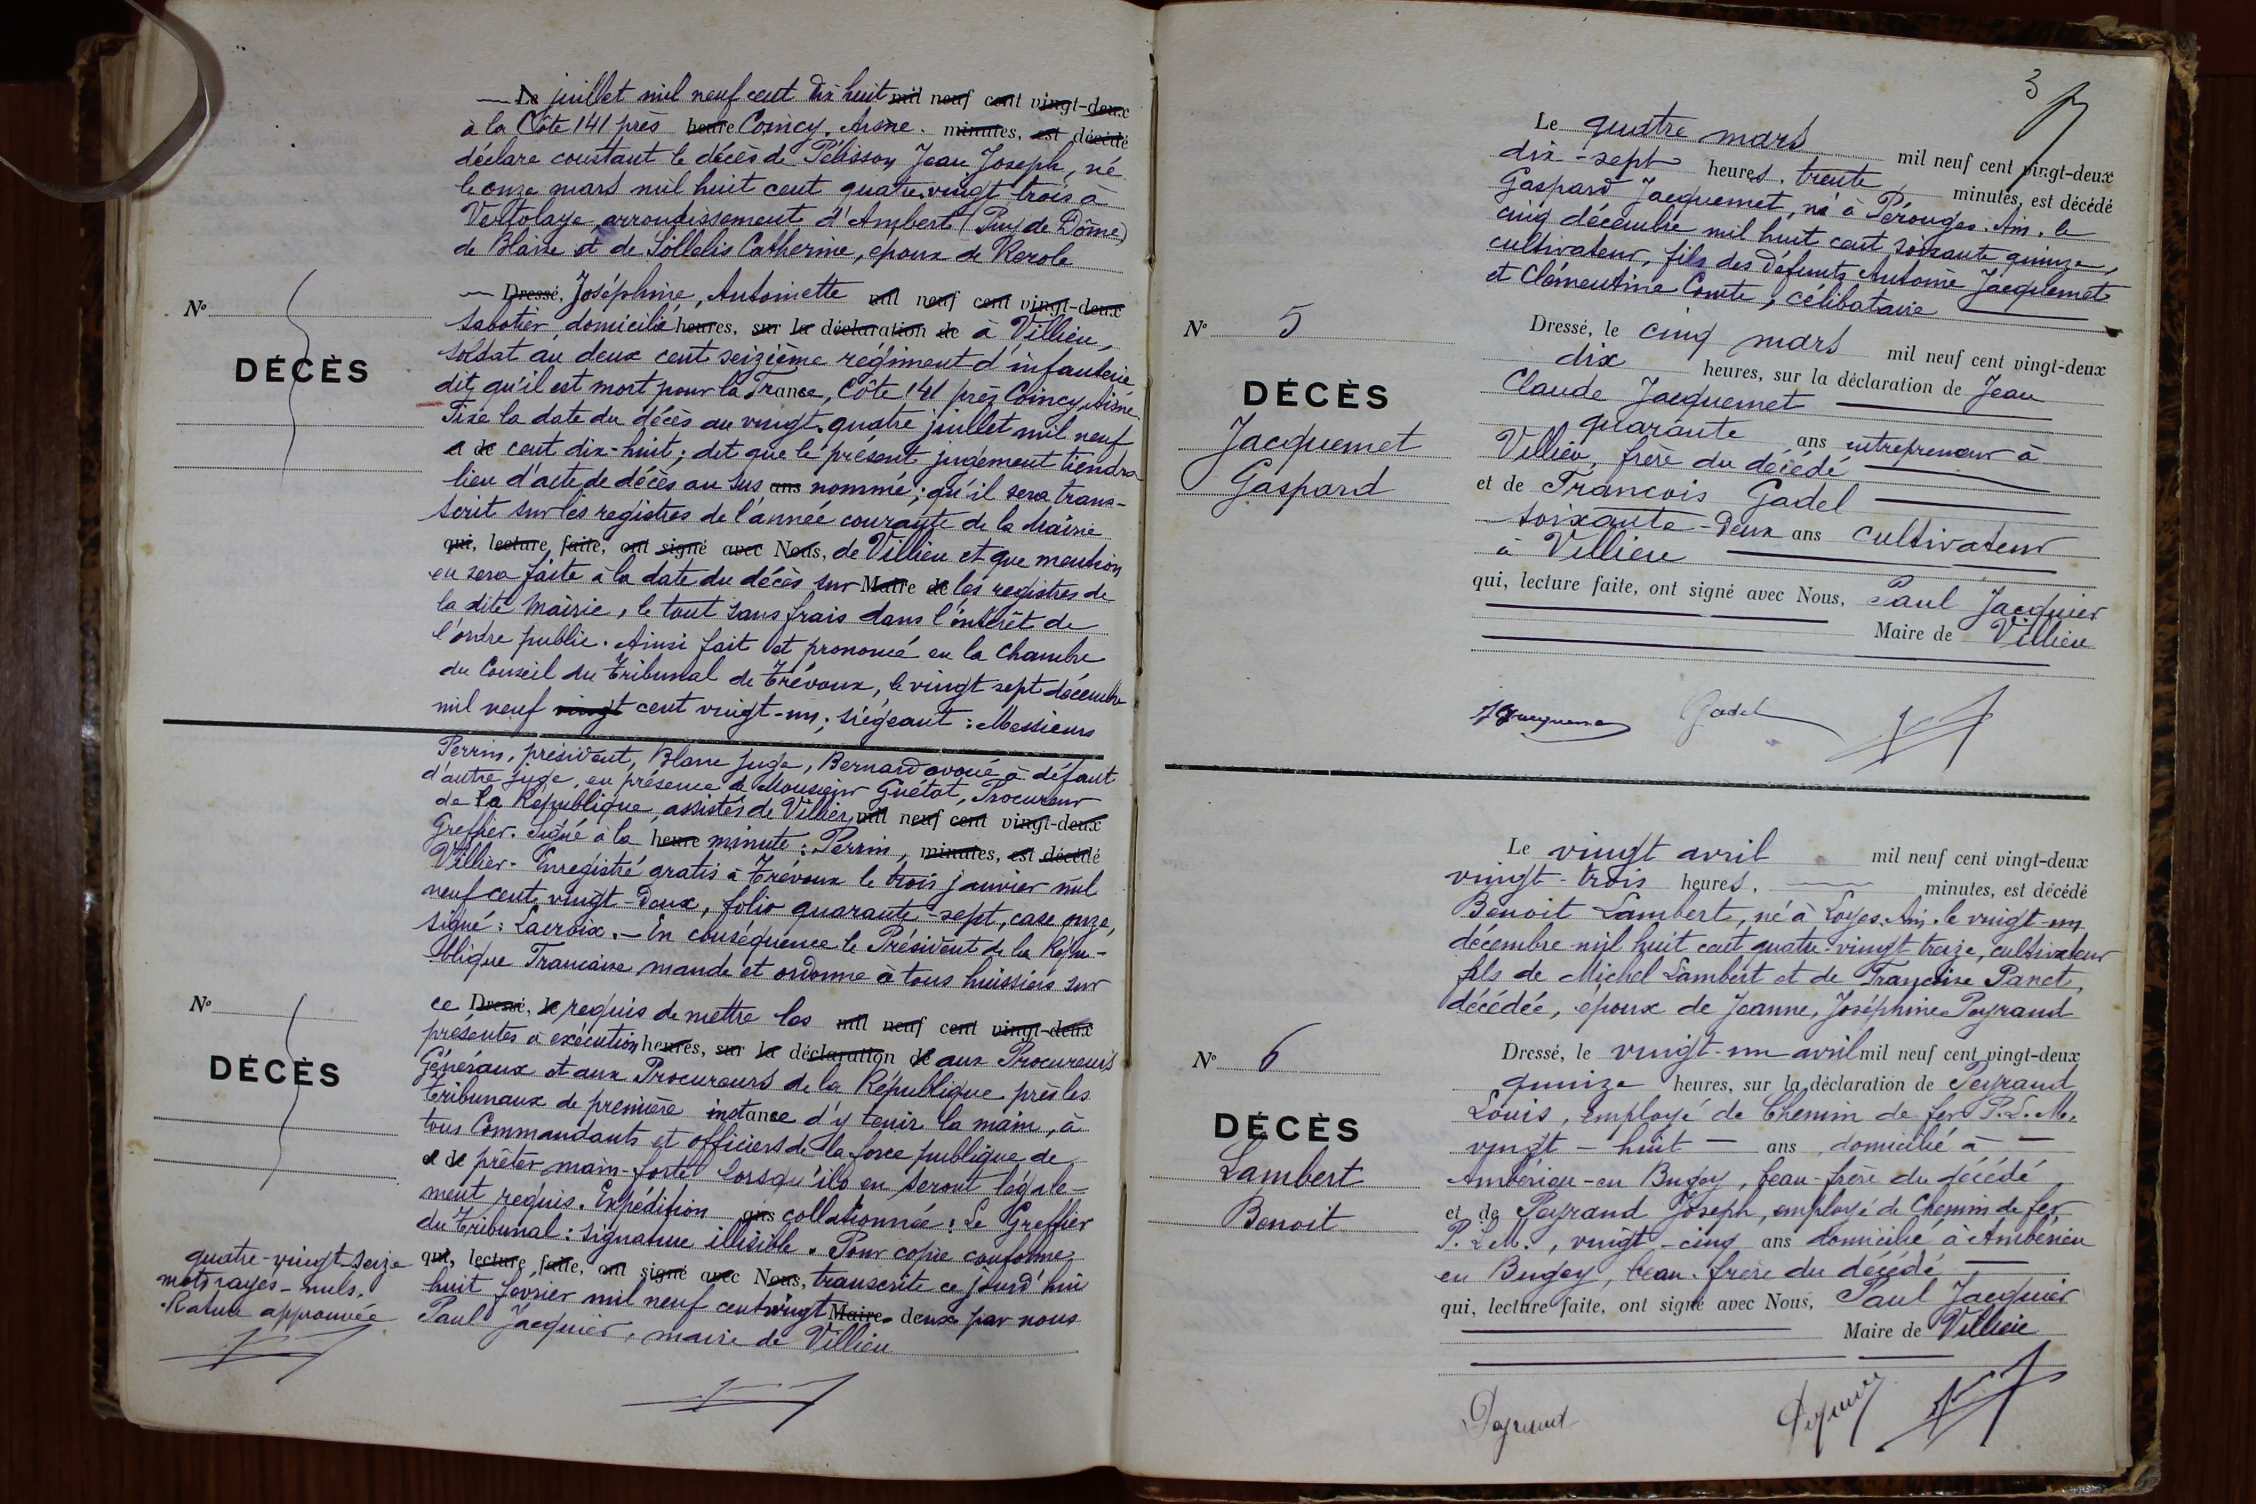 Le juillet mil neuf cent dix huit mil neuf cent vingt-deux
à la Côte 141 près heure Coincy, Aisne. minutes, est décédé
déclare constant le décès de Pélisson, Jean Joseph, né
le onze mars mil huit cent quatre vingt trois à
Vertolaye arrondissement d'Ambert (Puy de Dôme)
de Blaise et de Sollelis Catherine, époux de Rerole
Dressé, Joséphine, Antoinette mil neuf cent vingt-deux
sabotier domicilié heures, sur la déclaration de à Villieu,
soldat au deux cent seizième régiment d'infanterie
dit qu'il est mort pour la France, Côte 141 près Coincy, Aisne
Fixe la date du décès au vingt-quatre juillet mil neuf
et de cent dix-huit; dit que le présent jugement tiendra
lieu d'acte de décès au sus ans nommé; qu'il sera trans-
scrit sur les registres de l'année courante de la Mairie
qui, lecture faite, ont signé avec Nous, de Villieu et que mention
en sera faite à la date du décès sur Maire de les registres de
la dite Mairie, le tout sans frais dans l'intérêt de
l'ordre public. Ainsi fait et prononcé en la Chambre
du Conseil du Tribunal de Trévoux, le vingt sept décembre
mil neuf vingt cent vingt-un; siégeant: Messieurs
N°
DÉCÈS
Perrin, président, Blanc juge, Bernard avoué à défaut
d'autre juge, en présence de Monsieur Guétat, Procureur
de la République, assistés de Villier, mil neuf cent vingt-deux
Greffier. Signé à la heure minute: Perrin, minutes, est décédé
Villier. Enregistré gratis à Trévoux le trois janvier mil
neuf cent vingt-deux, folio quarante-sept, case onze,
signé: Lacroix. - En conséquence le Président de la Répu-
blique Française mande et ordonne à tous huissiers sur
ce Dressé, le requis de mettre les mil neuf cent vingt-deux
présentes à exécution heures, sur la déclaration de aux Procureurs
Généraux et aux Procureurs de la République près les
tribunaux de première instance d'y tenir la main, à
tous Commandants et officiers de la force publique de
et de prêter main-forte lorsqu'ils en seront légale-
ment requis. Expédition ans collationnée: Le Greffier
du Tribunal: signature illisible. Pour copie conforme
qui, lecture faite, ont signé avec Nous, transcrite ce jourd'hui
huit février mil neuf cent vingt Maire deux par nous
Paul Jacquier, maire de Villieu
N°
DÉCÈS
quatre-vingt-seize
mots rayés-nuls.
Rature approuvée
3
Le quatre mars mil neuf cent vingt-deux
dix-sept heures. trente minutes, est décédé
Gaspard Jacquemet, né à Pérouges. Ain. le
cinq décembre mil huit cent soixante quinze,
cultivateur, fils des défunts Antoine Jacquemet
et Clémentine Comte, célibataire
Dressé, le cinq mars mil neuf cent vingt-deux
dix heures, sur la déclaration de Jean
Claude Jacquemet
quarante ans entrepreneur à
Villieu, frère du décédé
et de François Gadel
soixante-deux ans cultivateur
à Villieu
qui, lecture faite, ont signé avec Nous, Paul Jacquier
Maire de Villieu
Gadel
N° 5
DÉCÈS
Jacquemet
Gaspard
Le vingt avril mil neuf cent vingt-deux
vingt-trois heures. minutes, est décédé
Benoit Lambert, né à Loyes. Ain. le vingt-un
décembre mil huit cent quatre-vingt treize, cultivateur
fils de Michel Lambert et de Françoise Panet,
décédée, époux de Jeanne, Joséphine Peyraud
Dressé, le vingt-un avril mil neuf cent vingt-deux
quinze heures, sur la déclaration de Peyraud
Louis, employé de Chemin de fer P.L.M.
vingt-huit ans domicilié à
Ambérieu-en Bugey, beau-frère du décédé
et de Peyraud Joseph, employé de Chemin de fer
P.L.M., vingt-cinq ans domicilié à Ambérieu
en Bugey, beau-frère du décédé
qui, lecture faite, ont signé avec Nous, Paul Jacquier
Maire de Villieu
Peyraud
N° 6
DÉCÈS
Lambert
Benoit